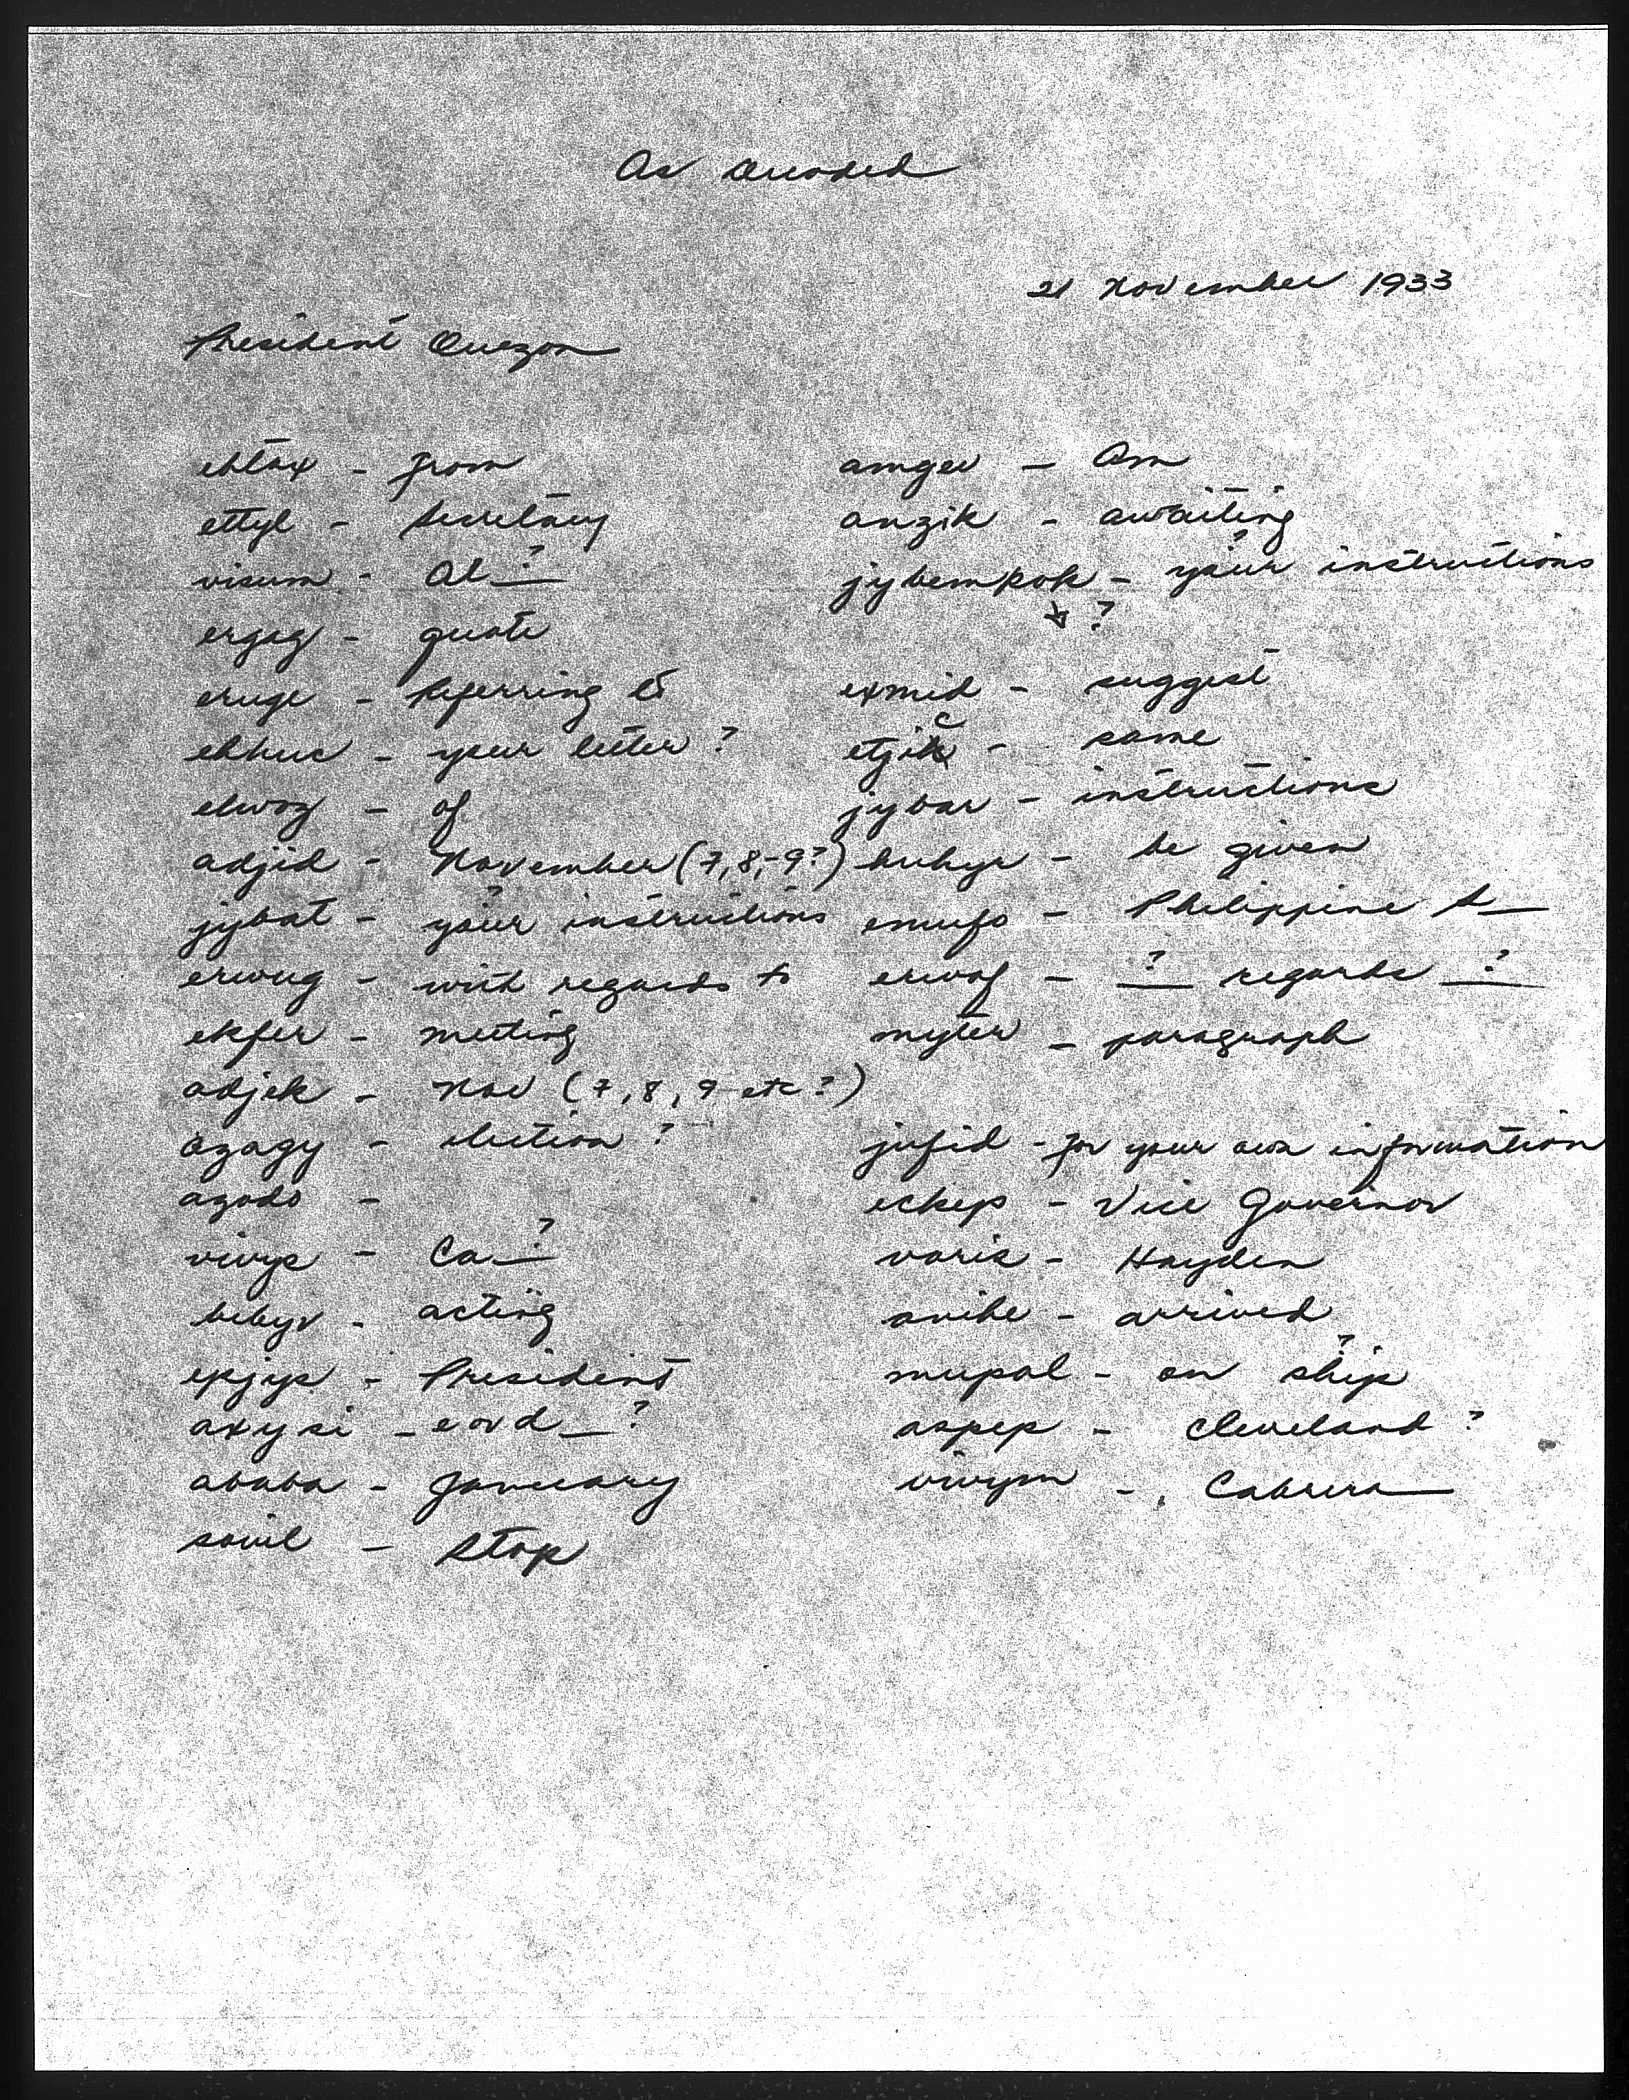 As decoded
21 November 1933
President Quezon
ehtax - from
ettyl - Secretary
visum - Al__?
ergag - quote
eruge - Referring to
ehhuc - your letter ?
elwoz - of
adjid - November (7,8,-9?)
jybat - your instructions
erwug - with regards to
ekfer - meeting
adjek - Nov (7, 8, 9 etc ?)
azagy - election ?
azodo -
vivys - Ca__?
bebyv - acting
epjys - President
axysi - e or d __ ?
ababa - January
sowil - Stop
amgev - Am
anzik - awaiting
jybempok - your instructions
?
exmid - suggest
etjik c - same
jybar - instructions
bubyr - be given
emufo - Philippine S__
erwof - __?__ regards __?__
myter - paragraph
jufid - for your own information
eckeps - Vice Governor
varis - Hayden
anibe - arrived
mupal - on ship ?
aspep - Cleveland ?
vivym - Cabrera